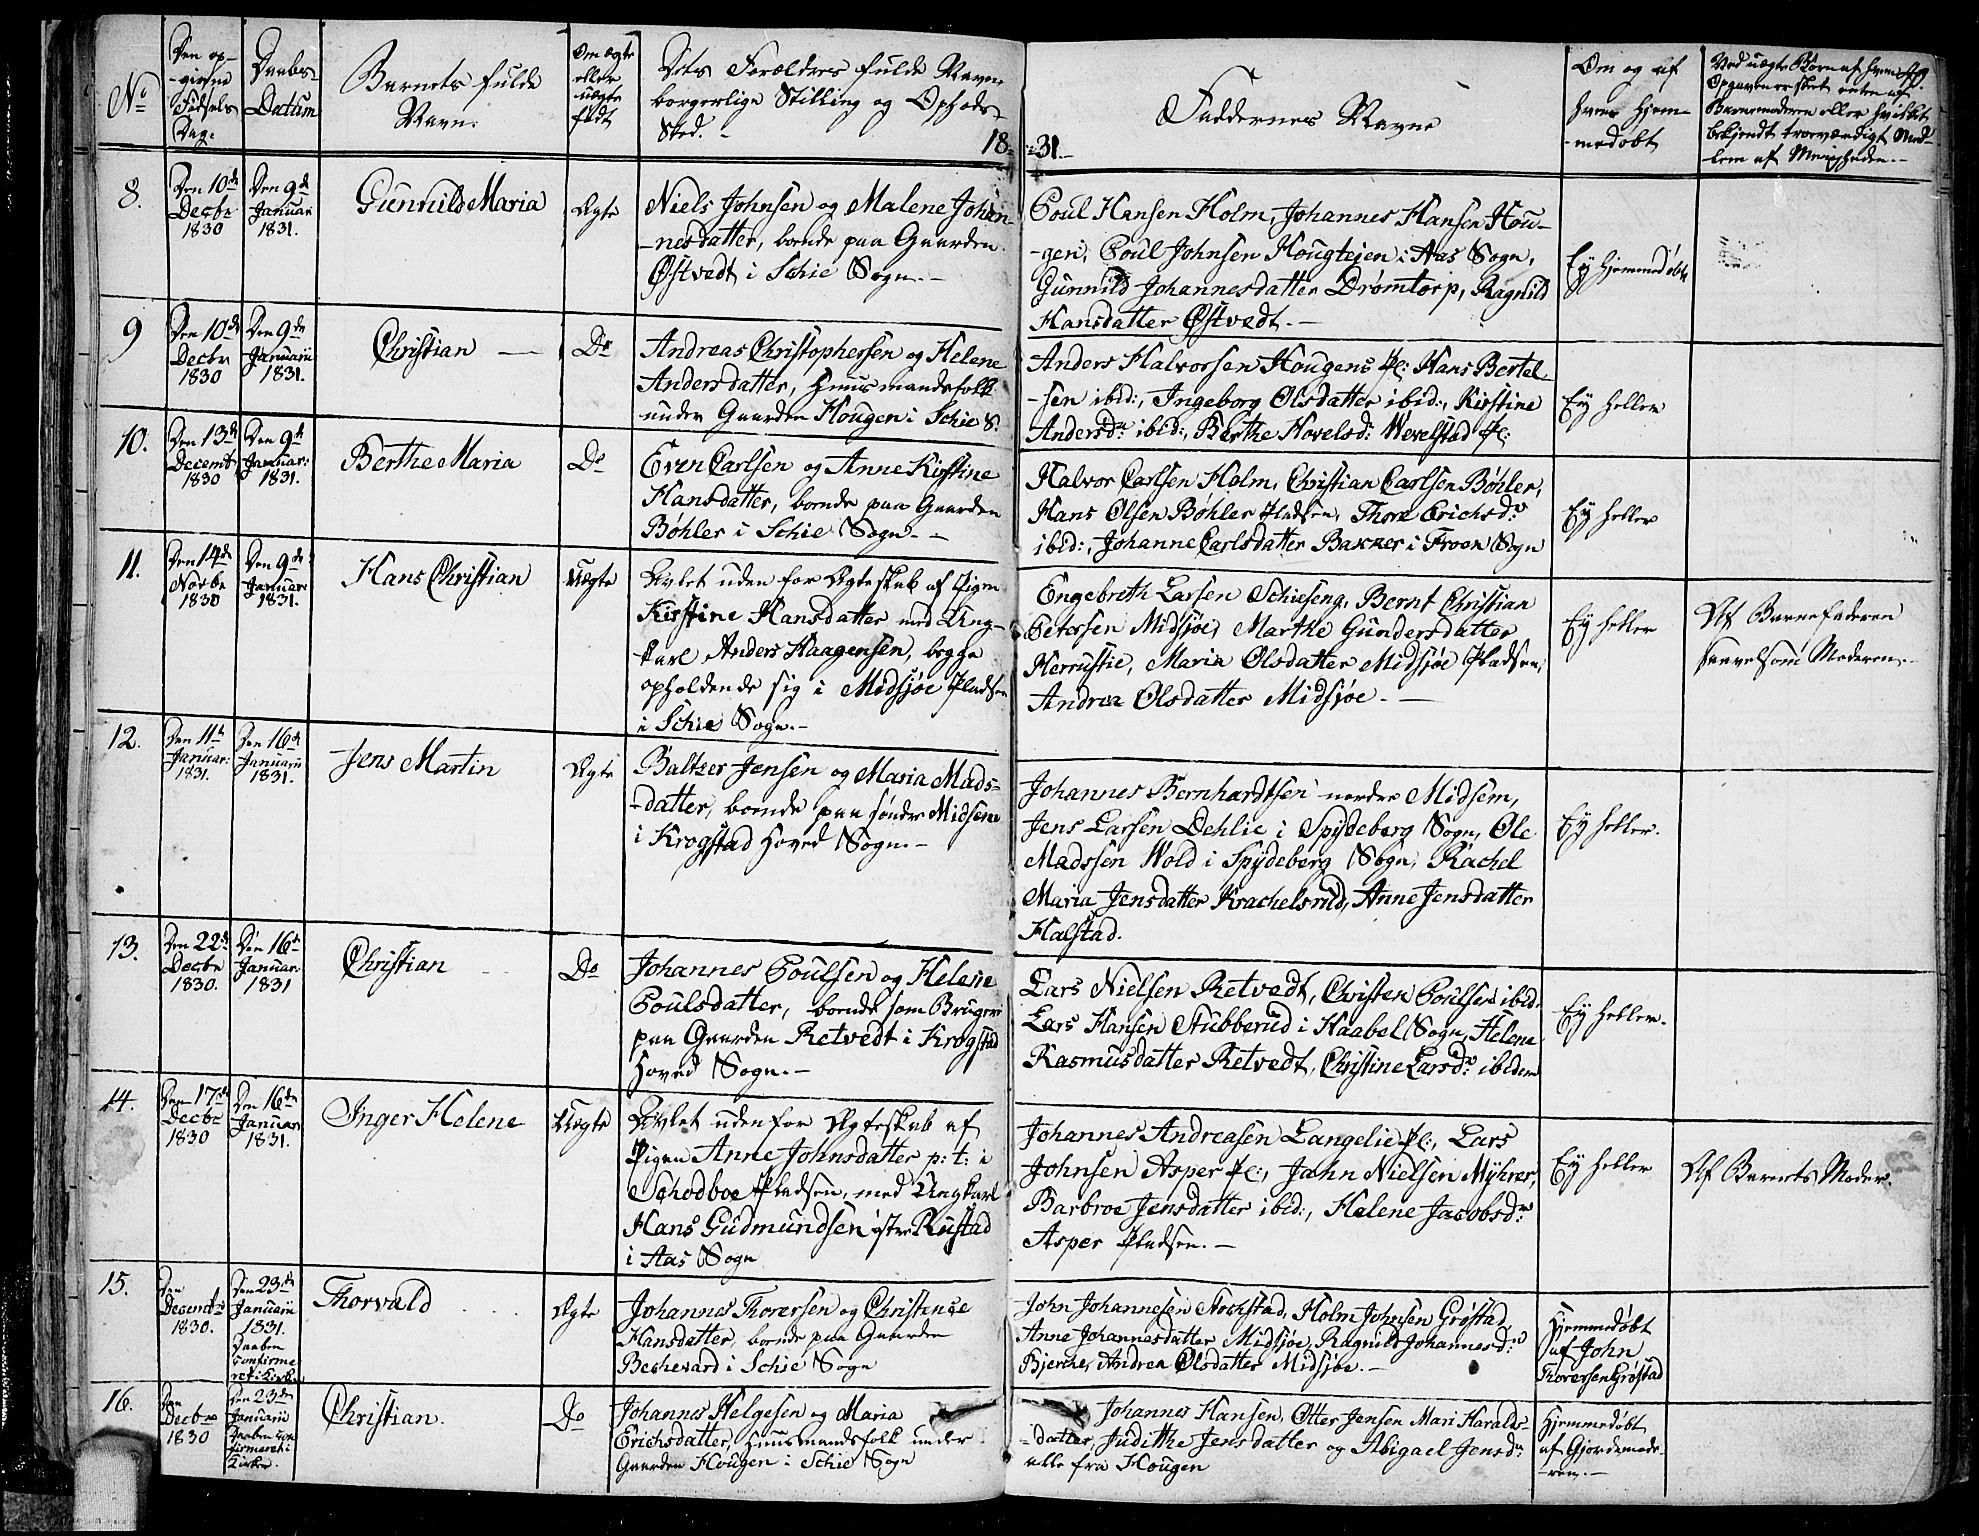 No
Den op-
-givne
Fødsels
Dag.
Daabs-
Datum
Barnets fulde
Navn.
Om ægte
eller
uægte
født
Dets Forældres fulde Navne
borgerlige Stilling og Opholds-
Sted. -
18
31.
Faddernes Navne
Om og af
hvem hjem-
-medøbt
Ved uægte Børn af hvem
Opgaven er skeet enten af
Barnemoderen eller hvilket
bekjendt troeværdigt Med-
lem af Menigheden.-
8.
Den 10de
Decbr
1830
Den 9de
Januar
1831.
Gunnild Maria
Ægte
Niels Johnsen og Malene Johan-
-nesdatter, boende paa Gaarden
Østvedt i Schie Sogn.-
Poul Hansen Holm, Johannes Hansen Hou-
-gen, Poul Johnsen Hougtejen i Aas Sogn,
Gunnild Johannesdatter Drømtorp, Ragnild
Hansdatter Østvedt.-
Ey hjemmedøbt
9
Den 10de
Decbr
1830
Den 9de
Januarii
1831.
Christian
Do
Andreas Christophersen og Helene
Andersdatter, Huusmandsfolk
under Gaarden Hougen i Schie S.
Anders Halvorsen Hougens Pl: Hans Bertel
-sen ibid:, Ingeborg Olsdatter ibid:, Kirstine
Andersdr ibid:, Berthe Hovelsd: Wevelstad Pl:
Ey heller
10.
Den 13de
Decemb
1830
Den 9de
Januar:
1831.
Berthe Maria
Do
Even Carlsen og Anne Kirstine
Hansdatter, boende paa Gaarden
Bøhler i Schie Sogn.-
Halvor Carlsen Holm, Christian Carlsen Bøhler,
Hans Olsen Bøhler Pladsen, Thore Erichsdr
ibid:, Johanne Carlsdatter Bakker i Froen Sogn
Ey heller
11.
Den 14de
Novbr
1830
Den 9de
Januar
1831.
Hans Christian
Uægte
Avlet uden for Ægteskab af Pigen
Kirstine Hansdatter med Ung-
karl Anders Haagensen, begge
opholdende sig i Midsjøe Pladsen
i Schie Sogn.-
Engebreth Larsen Schieseng, Bernt Christian
Petersen Midsjøe, Marthe Gundersdatter
Herrustie, Maria Olsdatter Midsjøe Pladsen,
Andrea Olsdatter Midsjøe. -
Ey heller
Af Barnefaderen
saavelsom Moderen.-
12.
Den 11te
Januar:
1831.
Den 16de
Januarii
1831.
Jens Martin
Ægte
Baltzer Jensen og Maria Mads-
-datter, boende paa søndre Midsem
i Krogstad Hoved Sogn.-
Johannes Bernhardtsen nordre Midsem,
Jens Larsen Dehlie i Spydeberg Sogn, Ole
Madssen Wold i Spydeberg Sogn, Rachel
Maria Jensdatter Krachelsrud, Anne Jensdatter
Halstad.
Ey heller.
13.
Den 22de
Decbr
1830.
Den 16de
Januar:
1831
Christian
Do
Johannes Poulsen og Helene
Poulsdatter, boende som Bruger
paa Gaarden Retvedt i Krogstad
Hoved Sogn.-
Lars Nielsen Retvedt, Christen Poulsen ibid.
Lars Hansen Stubberud i Haabel Sogn, Helene
Rasmusdatter Retvedt, Christine Larsdr ibidem
Ey heller.
14.
Den 17de
Decbr
1830
Den 16de
Januar
1831.
Inger Helene
Uægte
Avlet uden for Ægteskab af
Pigen Anne Johnsdatter p: t: i
Schodboe Pladsen, med Ungkarl
Hans Gudmundsen østre Rustad
i Aas Sogn
Johannes Andreasen Langelie Pl:, Lars
Johnsen Asper Pl:, John Nielsen Myhrer,
Barbroe Jensdatter ibid:, Helene Jacobsdr
Asper Pladsen.-
Ey heller
Af Barnets Moder.
15.
Den
Decembr
1830.
Den 23de
Januarii
1831.
Daaben
confirme
ret i Kirken
Thorvald
Ægte
Johannes Thorersen og Christense
Hansdatter, boende paa Gaarden
Bechevard i Schie Sogn
John Johannesen Stochstad, Holm Johnsen Grøstad,
Anne Johannesdatter Midsjøe, Ragnild Johannesdr
Bjerche, Andrea Olsdatter Midsjøe.-
Hjemmedøbt
af John
Thorersen Grøstad
16.
Den
Decbr
1830
Den 23de
Januarii
Daaben con
firmeret i
Kirken.
Christian.
Do
Johannes Helgesen og Maria
Erichsdatter, Huusmandsfolk under
Gaarden Hougen i Schie Sogn
Johannes Hansen, Otter Jensen Mari Haralds-
-datter, Judithe Jensdatter og Abigael Jensdr
alle fra Hougen
Hjemmedøbt
af Gjordemode-
-ren.-